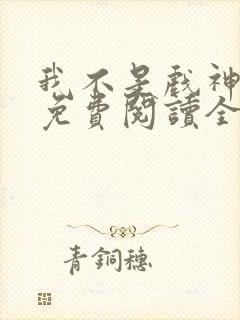 我不是戲神
免費閱讀全
青銅穗